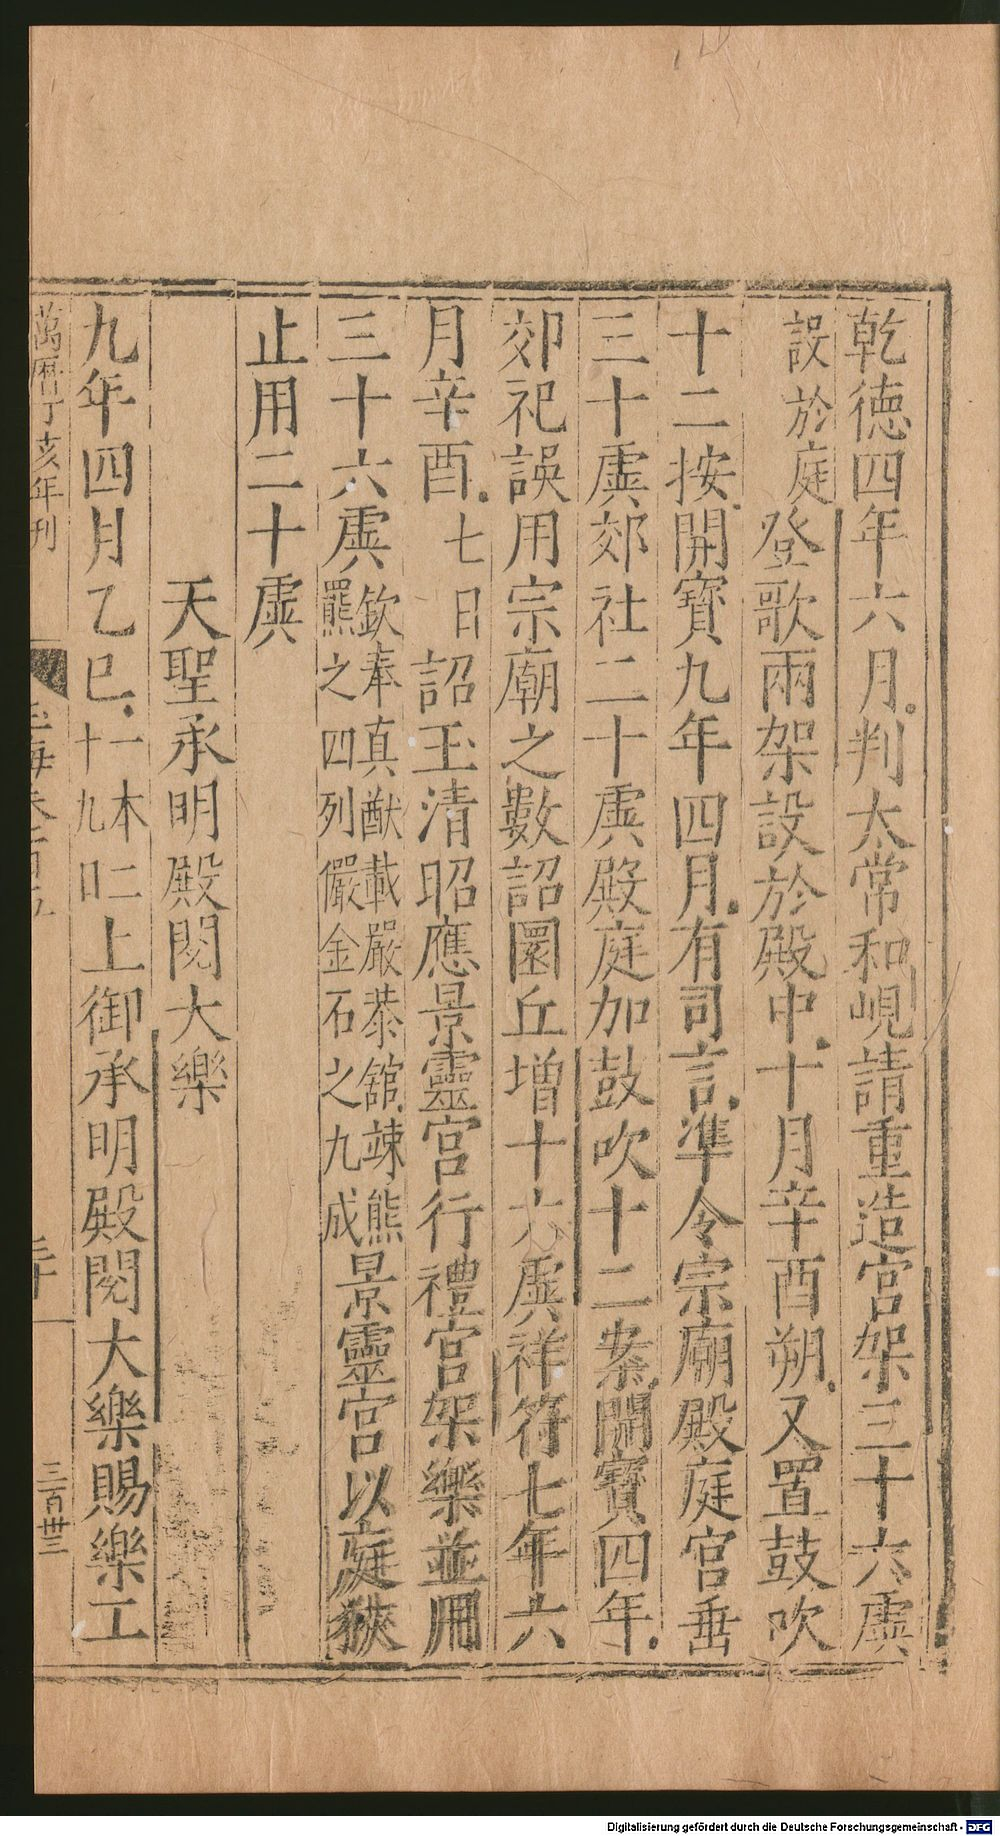 乾徳四年六月判太常和峴請重造宮架三十六虡
設於庭登歌兩架設於殿中十月辛酉朔又置鼓吹
十二按開寶九年四月有司言準令宗廟殿庭宮垂
三十虡郊社二十虡殿庭加鼓吹十二案開寶四年
郊祀誤用宗廟之數詔圜丘增十六虡祥符七年六
月辛酉七日詔玉清昭應景靈宮行禮宮架樂並用
三十六虡欽奉真猷載嚴恭舘竦熊羆之四列儼金石之九成景靈宮以庭狹
止用二十虡
天聖承明殿閱大樂
九年四月乙巳一本二十九日上御承明殿閱大樂賜樂工
萬曆丁亥年刊
玉海卷一百五
三十
三百卅三
Digitalisierung gefördert durch die Deutsche Forschungsgemeinschaft - DFG